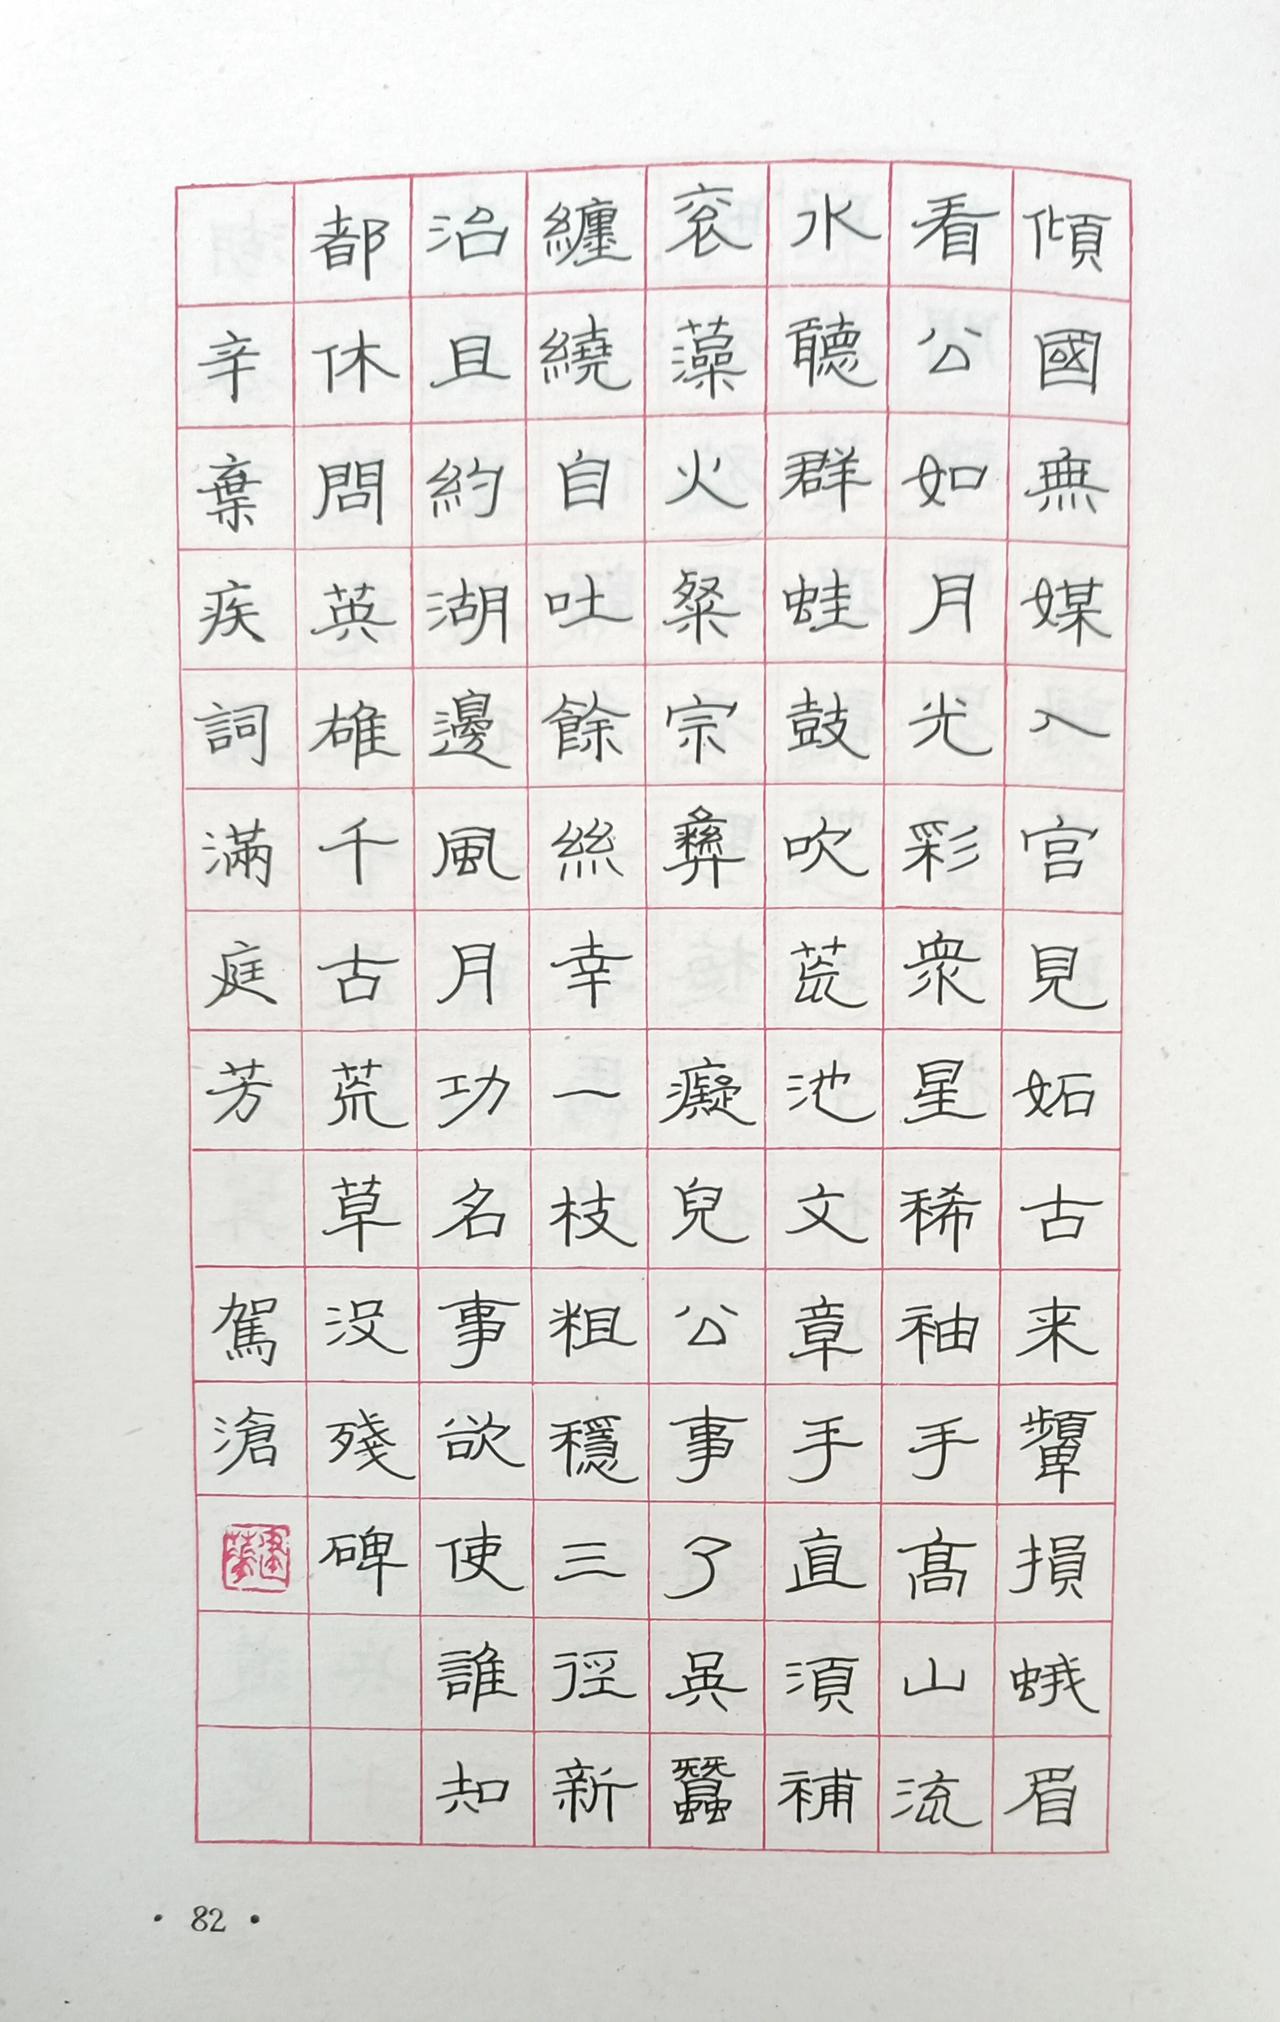 傾國無媒入宫見妬古来顰損蛾眉
看公如月光彩衆星稀袖手高山流
水聽群蛙鼓吹荒池文章手直須補
衮藻火粲宗彝 癡兒公事了吳蠶
纏繞自吐餘絲幸一枝粗穩三徑新
治且約湖邊風月功名事欲使誰知
都休問英雄千古荒草没殘碑
辛棄疾詞滿庭芳 駕滄
· 82 ·